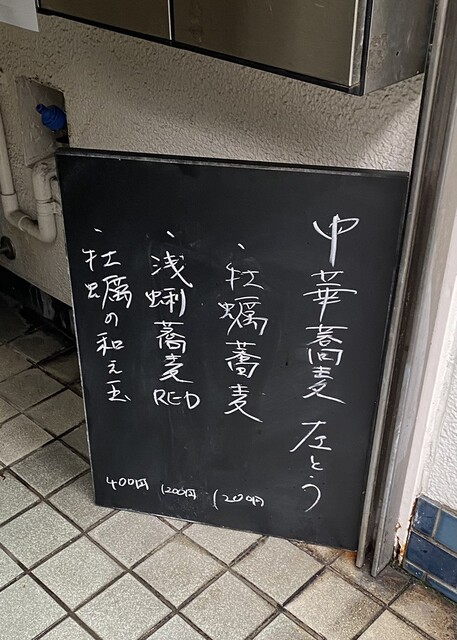 中華蕎麦 左とう
・牡蠣蕎麦 1200円
・浅蜊蕎麦RED 1200円
・牡蠣の和え玉 400円